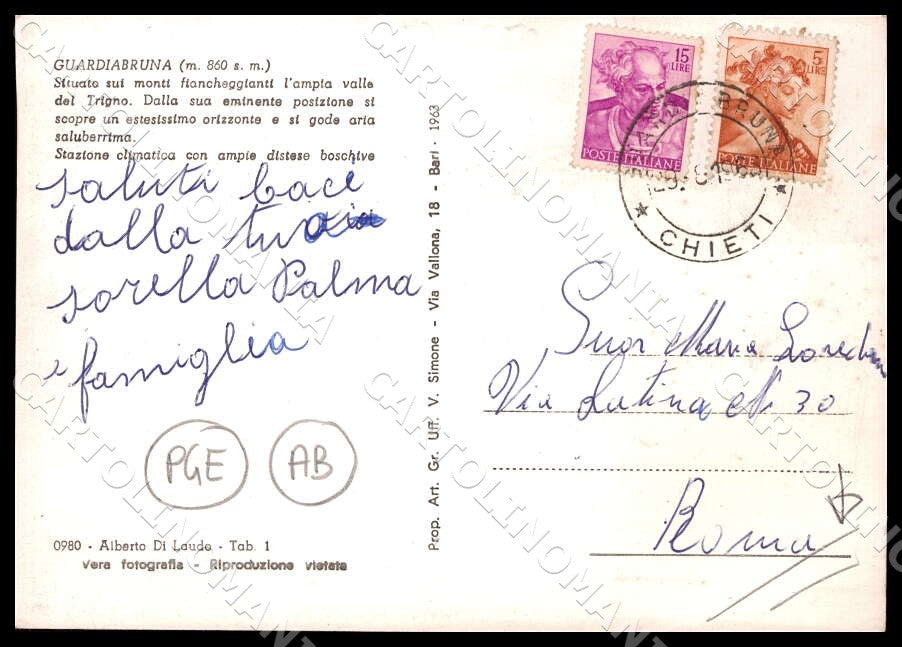 GUARDIABRUNA (m. 860 s. m.)
Situato sui monti fiancheggianti l'ampia valle
del Trigno. Dalla sua eminente posizione si
scopre un estesissimo orizzonte e si gode aria
saluberrima.
Stazione climatica con ampie distese boschive
saluti baci
dalla tua
sorella Palma
e famiglia
PGE
AB
0980 - Alberto Di Laudo - Tab. 1
Vera fotografia - Riproduzione vietata
Prop. Art. Gr. Uff. V. Simone - Via Vallona, 18 - Bari - 1963
15
LIRE
POSTE ITALIANE
5
LIRE
POSTE ITALIANE
BRUNA
CHIETI
Suor Maria
Via Latina N 30
Roma
CARTOLINOMANIA